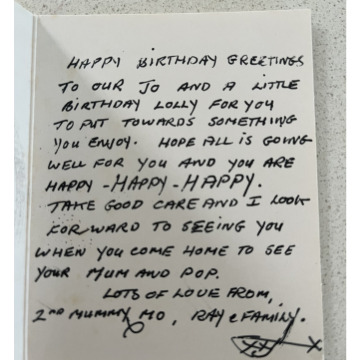 HAPPY BIRTHDAY GREETINGS
TO OUR JO AND A LITTLE
BIRTHDAY LOLLY FOR YOU
TO PUT TOWARDS SOMETHING
YOU ENJOY. HOPE ALL IS GOING
WELL FOR YOU AND YOU ARE
HAPPY - HAPPY - HAPPY.
TAKE GOOD CARE AND I LOOK
FORWARD TO SEEING YOU
WHEN YOU COME HOME TO SEE
YOUR MUM AND POP.
LOTS OF LOVE FROM,
2ND MUMMY MO, RAY & FAMILY.
XX X